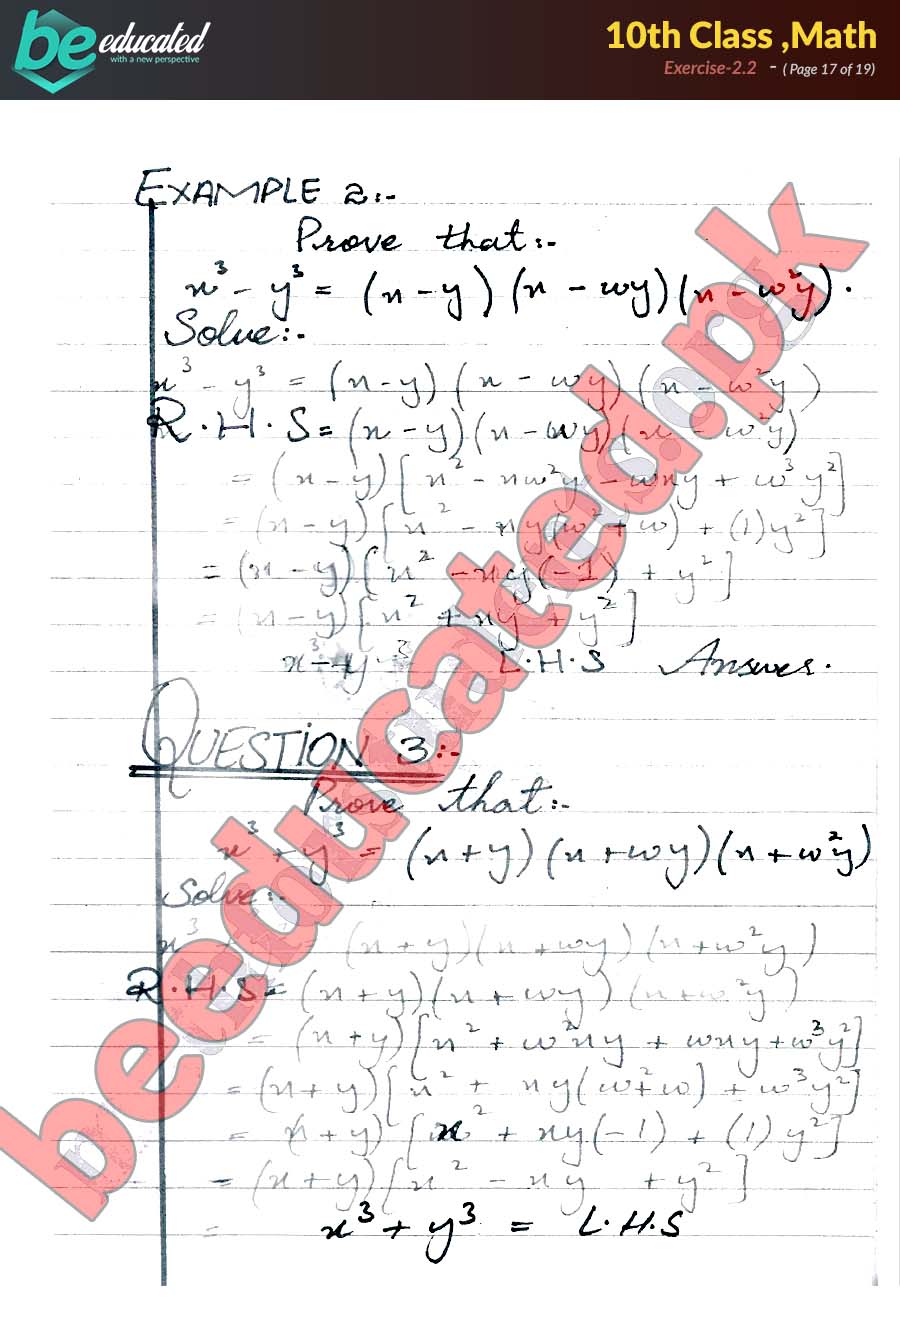 be educated
with a new perspective
10th Class ,Math
Exercise-2.2 - ( Page 17 of 19)
EXAMPLE 2:-
Prove that:-
x³ - y³ = (x - y) (x - wy) (x - w²y).
Solve:-
x³ - y³ = (x - y) (x - wy) (x - w²y)
R.H.S = (x - y) (x - wy) (x - w²y)
= (x - y) [x² - xw²y - wxy + w³y²]
= (x - y) [x² - xy(w² + w) + (1)y²]
= (x - y) [x² - xy(-1) + y²]
= (x - y) [x² + xy + y²]
x³ - y³ = L.H.S Answer.
QUESTION 3:-
Prove that:-
x³ + y³ = (x + y) (x + wy) (x + w²y)
Solve:-
x³ + y³ = (x + y) (x + wy) (x + w²y)
R.H.S = (x + y) (x + wy) (x + w²y)
= (x + y) [x² + w²xy + wxy + w³y²]
= (x + y) [x² + xy(w² + w) + w³y²]
= x + y) [x² + xy(-1) + (1) y²]
= (x + y) [x² - xy + y²]
= x³ + y³ = L.H.S
beeducated.pk